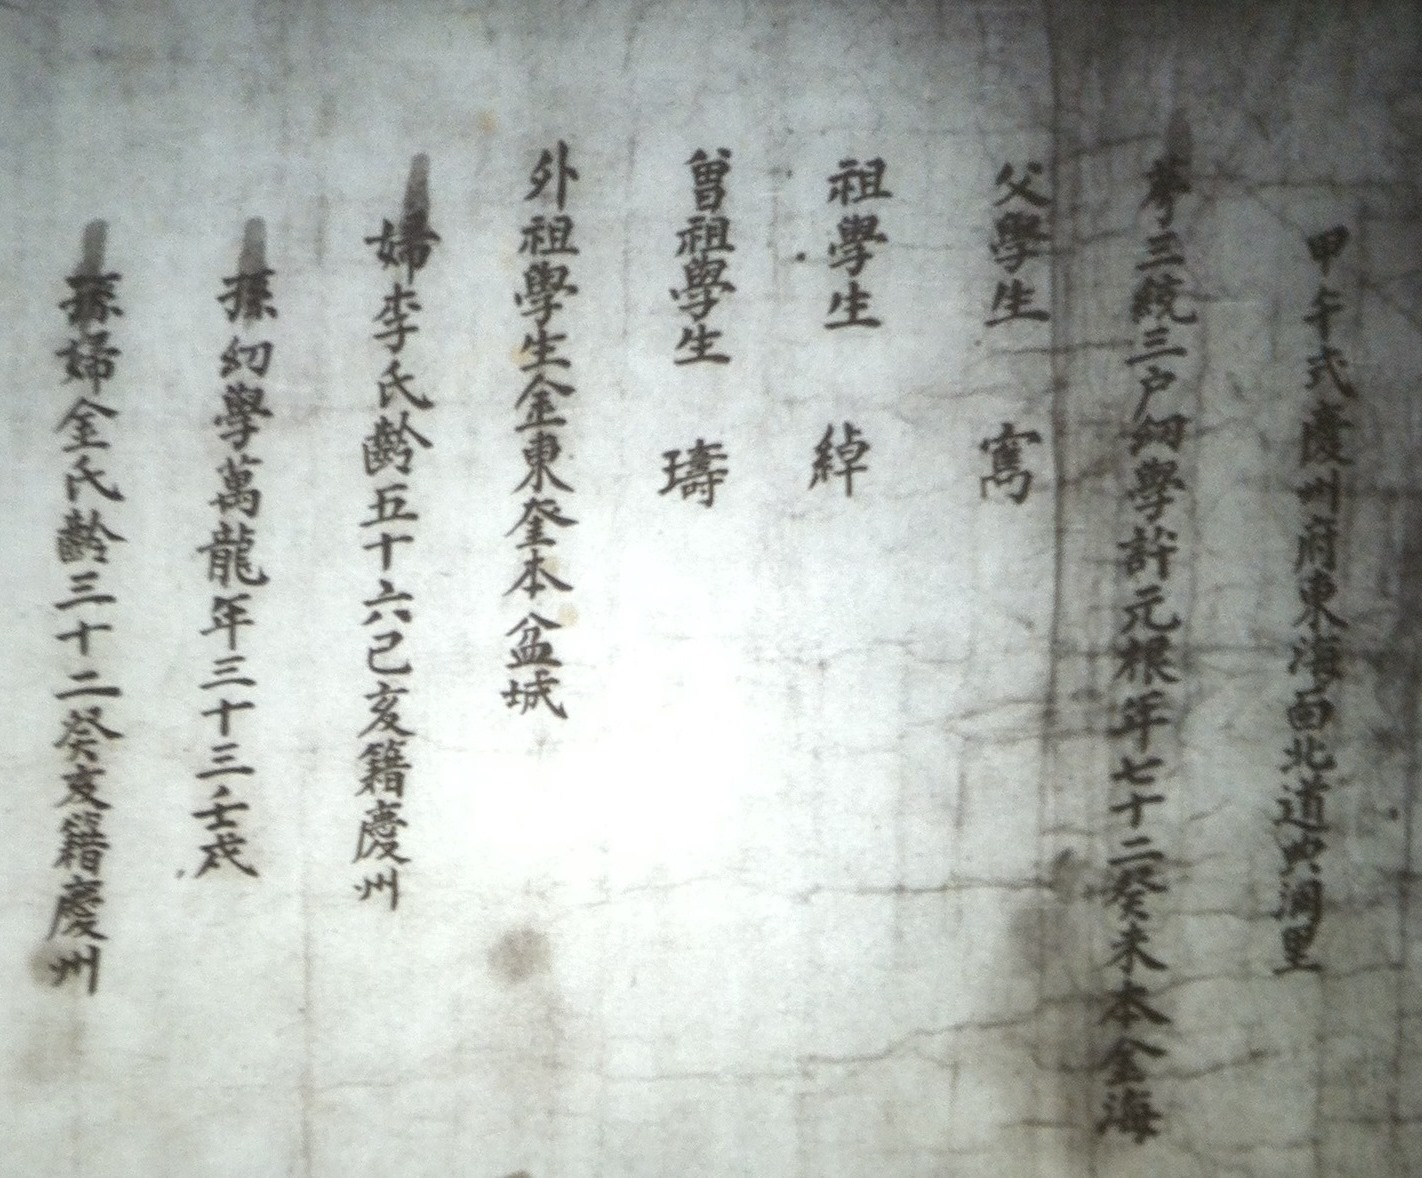 甲午式慶州府東海面北道典洞里
第三統三戶幼學許元根年七十二癸未本金海
父學生 寯
祖學生 綽
曾祖學生 璹
外祖學生金東奎本盆城
婦李氏齡五十六己亥籍慶州
孫幼學萬龍年三十三壬戌
孫婦金氏齡三十二癸亥籍慶州